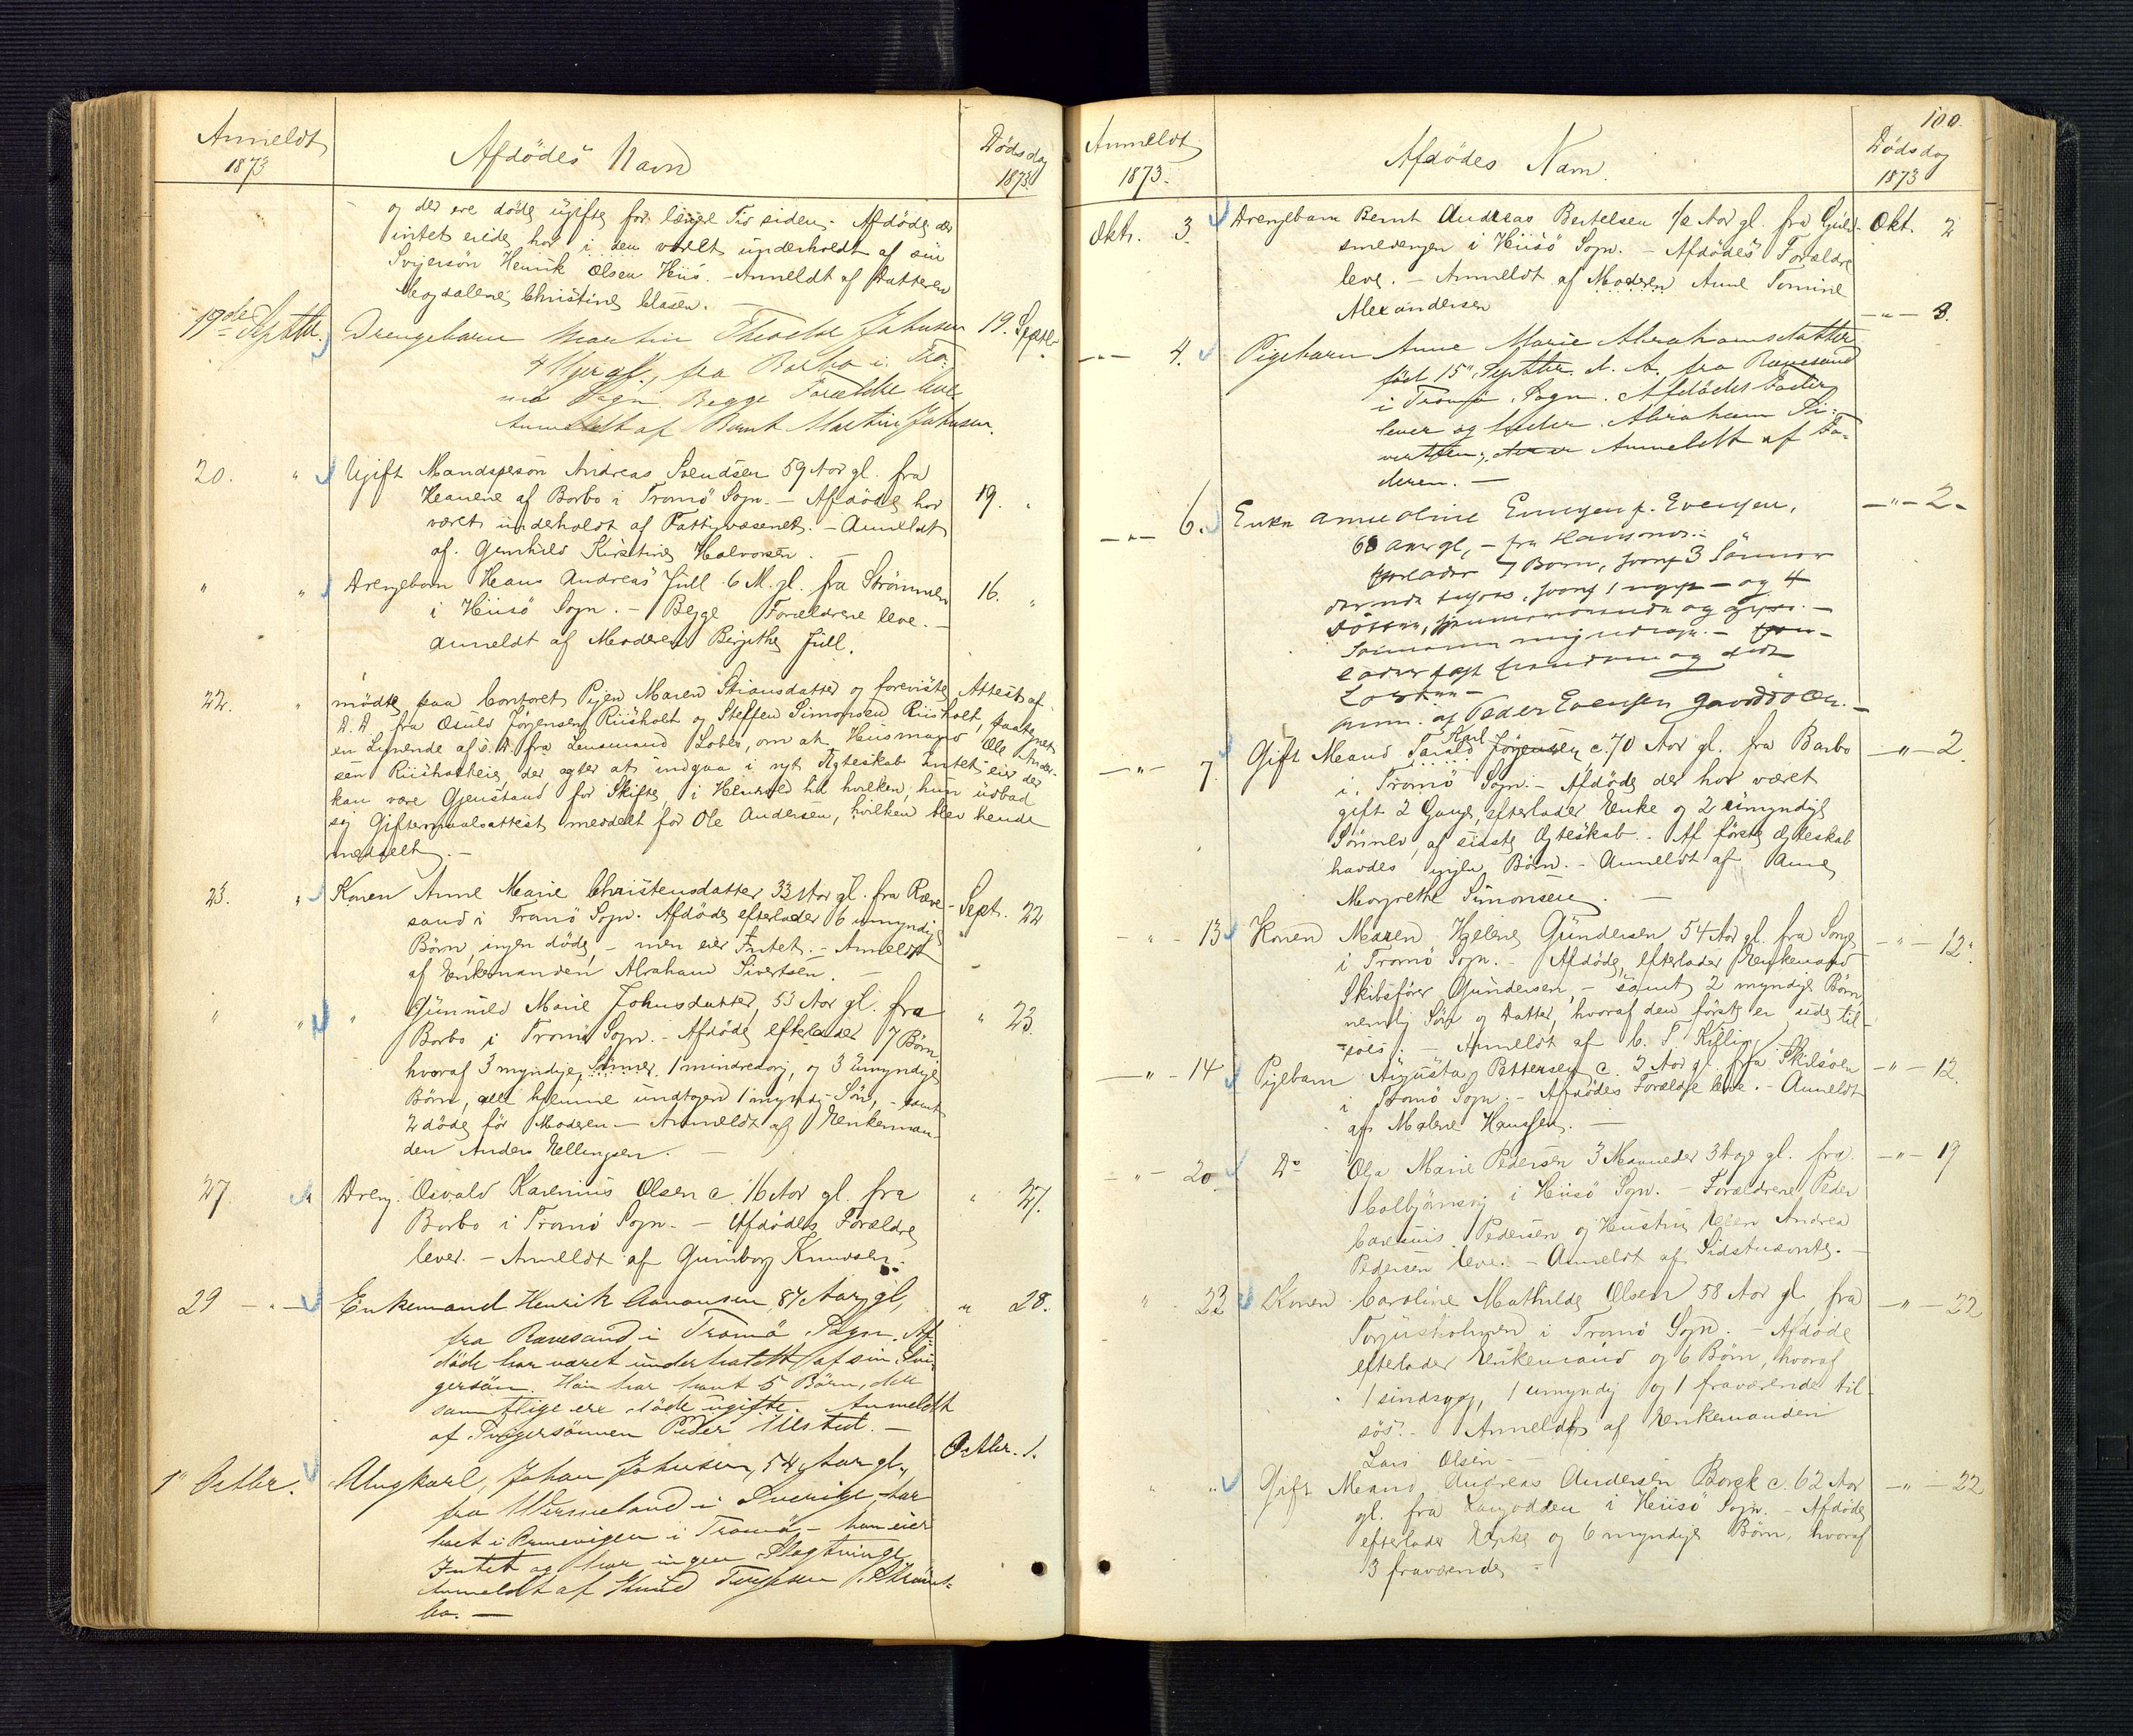 Anmeldt
1873
Afdödes Navn
Dödsdag
1873
og der ere döde ugifte for længre Tid siden. Afdöde der
intet eiede har i den været underholdt af sin
Svigersön Henrik Olsen Hiis. - Anmeldt af Datteren
Magdalene Christine Clasen. -
19de Septbr. Drengebarn Martin Theodor Johnsen 19. Septbr
4 Uger gl., fra Barbo i Tro-
mö Sogn. Begge Forældre leve
Anmeldt af Bernt Martin Johnsen.
20. " Ugift Mandsperson Andreas Svendsen 59 Aar gl. fra
af Barbo i Tromö Sogn. - Afdöde har 19. "
været underholdt af Fattigvæsenet. - Anmeldt
af Gunhild Kirstine Halvorsen. -
" " Drengebarn Hans Andreas Juell 6 M. gl. fra Strömmen 16. "
i Hiisö Sogn. - Begge Forældrene leve. -
Anmeldt af Moderen Birgithe Juell.
22. " mödte paa Contoret Pigen Maren Stiansdatter og foreviste Attest af
D. D. fra Osuld Jörgensen Riisholt og Steffen Simonsen Riisholt, paategnet
en Lignende af s. D. fra Lensmand, om at Husmand Ole Ander-
sen Riisholteie, der agter at indgaa i nyt Ægteskab Intet eier der
kan være Gjenstand for Skifte, i Henhold til hvilken, hun udbad
sig Giftermaalsattest meddelt for Ole Andersen, hvilken blev hende
meddelt. -
23. " Konen Anne Marie Christensdatter 33 Aar gl. fra Ræve- Sept. 22
sand i Tromö Sogn. Afdöde efterlader 6 umyndige
Börn, ingen döde, - men eier Intet. - Anmeldt
af Enkemanden Abraham Sivertsen. -
" " " Gunnild Marie Johnsdatter, 53 Aar gl. fra " 23.
Barbo i Tromö Sogn. - Afdöde efterlader 7 Börn
hvoraf 3 myndige, Sönner, 1 mindreaarig, og 3 umyndige
Börn, alle hjemme undtagen 1 myndig Sön, - samt
2 döde för Moderen - Anmeldt af Enkeman-
den Anders Ellingsen. -
27. " Dreng Osvald Karenius Olsen c. 16 Aar gl. fra " 27.
Barbo i Tromö Sogn. - Afdödes Forældre
lever. - Anmeldt af Gunborg Knudsen.
29 - " - Enkemand Henrik Aanonsen, 84 Aar gl, " 28.
fra Rævesand i Tromö Sogn. Af-
döde har været underholdt af sin Svi-
gersön. Han har havt 5 Börn, der
samtlige ere döde ugifte. Anmeldt
af Svigersönnen Peder Ulsted. -
1" Octbr. Ungkarl, Johan Johnsen, 54 Aar gl., Octbr. 1.
fra Wermeland i Sverige, har
boet i i Tromö - han eier
Intet og har ingen Slægtninge
Anmeldt af Knud Terjesen
bo. -
100.
Anmeldt
1873.
Afdödes Navn.
Dödsdag
1873
Oktr. 3. Drengebarn Bernt Andreas Bertelsen 1/2 Aar gl. fra Guld- Okt. 2
smedengen i Hiisö Sogn. - Afdödes Forældre
leve. - Anmeldt af Moderen Anne Tomine
Alexandersen
- " - 4. Pigebarn Anne Marie Abrahamsdatter - " - 3.
födt 15" Septbr. d. A. fra Rævesand
i Tromö Sogn. Afdödes Fader
lever og heder Abraham Si-
vertsen; Anmeldt af Fa-
deren. -
- " - 6. Enke Anne Oline Evensen f. Evensen, - " - 2 -
68 Aar gl,
efterlader 7 Börn, hvoraf 3 Sönner
og 4
Anm. af Peder Evensen
- " - 7. Gift Mand Tarald Karl Jörgensen c. 70 Aar gl. fra Barbo - " - 2.
i Tromö Sogn. - Afdöde der har været
gift 2 Gange, efterlader Enke og 2 umyndige
Sönner, af sidste Ægteskab. - Af förste Ægteskab
havdes ingen Börn. - Anmeldt af Anne
Margrethe Simonsen. -
- " - 13 Konen Maren Helene Gundersen 54 Aar gl. fra Songe - " - 12.
i Tromö Sogn. - Afdöde, efterlader Enkemand
Skibsförer Gundersen, - samt 2 myndige Börn
nemlig Sön og Datter, hvoraf den förste er ude til-
söes. - Anmeldt af C. S. Kifling
- " - 14 Pigebarn Augusta Pettersen c. 3 Aar gl. fra Skilsöen - " - 12.
i Tromö Sogn. - Afdödes Forældre leve. - Anmeldt
af Malene Hanssen. -
- " - 20 Do Olga Marie Pedersen 3 Maaneder 3 Dage gl. fra - " - 19
Colbjörnsvig i Hiisö Sogn. - Forældrene Peder
Carenius Pedersen og Hustru Ellen Andrea
Pedersen leve. - Anmeldt af Sidstnævnte. -
" 23 Konen Caroline Mathilde Olsen 58 Aar gl. fra - " - 22
Torjusholmen i Tromö Sogn. - Afdöde
efterlader Enkemand og 6 Börn, hvoraf
1 sindssyg, 1 umyndig og 1 fraværende til-
söes. - Anmeldt af Enkemanden
Lars Olsen -
" " Gift Mand Andreas Andersen Borgk c. 62 Aar - " - 22
gl. fra Langodden i Hiisö Sogn. - Afdöde
efterlader Enke og 6 myndige Börn, hvoraf
3 fraværende